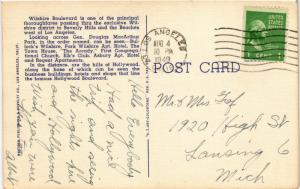 Wilshire Boulevard is one of the principal
thoroughfares passing thru the exclusive Wil-
shire district to Beverly Hills and the Beaches
west of Los Angeles.
Looking across Gen. Douglas MacArthur
Park, in the order named, can be seen: Bul-
lock's Wilshire, Park Wilshire Apt. Hotel, The
Town House, "The Arcady", First Congrega-
tional Church, Elks Club, Asbury Apt. Hotel
and Regent Apartments.
In the distance, are the hills of Hollywood,
along the base of which can be seen the
business buildings, hotels and shops that line
the famous Hollywood Boulevard.
Hello Everybody
Had a nice
and seeing
the
nights here
and Hollywood
Wish you were
with us
LOS ANGELES
AUG 4
PM
1949
POST CARD
Mr & Mrs
1920 High St
Lansing 6
Mich